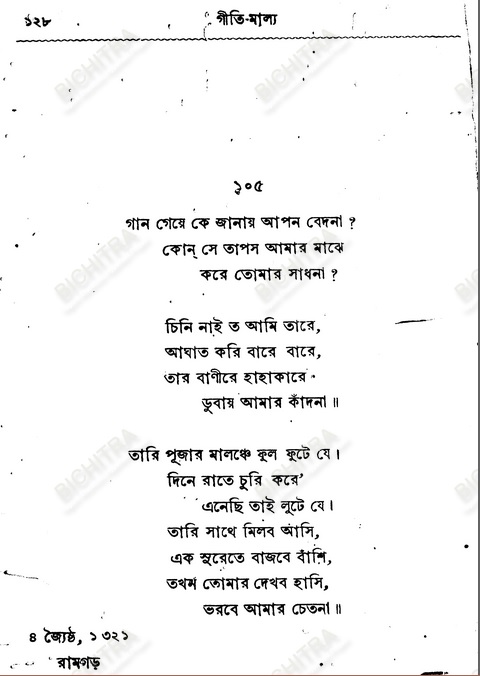 ১২৮ গীতি-মাল্য
১০৫
গান গেয়ে কে জানায় আপন বেদনা ?
কোন্ সে তাপস আমার মাঝে
করে তোমার সাধনা ?
চিনি নাই ত আমি তারে,
আঘাত করি বারে বারে,
তার বাণীরে হাহাকারে
ডুবায় আমার কাঁদনা ॥
তারি পূজার মালঞ্চে ফুল ফুটে যে।
দিনে রাতে চুরি করে'
এনেছি তাই লুটে যে।
তারি সাথে মিলব আসি,
এক সুরেতে বাজবে বাঁশি,
তখন তোমার দেখব হাসি,
ভরবে আমার চেতনা ॥
৪ জ্যৈষ্ঠ, ১৩২১
রামগড়
BICHITRA
BICHITRA
BICHITRA
BICHITRA
BICHITRA
BICHITRA